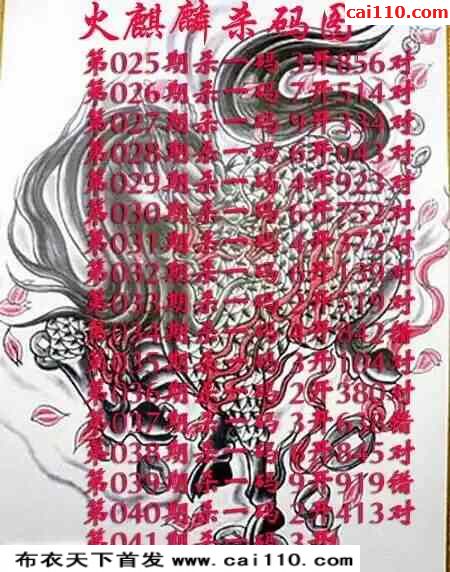 cai110.com
火麒麟杀码图
第025期杀一码 3开856对
第026期杀一码 7开514对
第027期杀一码 9开334对
第028期杀一码 6开043对
第029期杀一码 4开923对
第030期杀一码 6开752对
第031期杀一码 4开772对
第032期杀一码 开139对
第033期杀一码 开519对
第034期杀一码 开842错
第035期杀一码 开104对
第036期杀一码 2开380对
第037期杀一码 3开63 错
第038期杀一码 开845对
第039期杀一码 9开919错
第040期杀一码 2开413对
第041期杀一码 3开
布衣天下首发 www.cai110.com